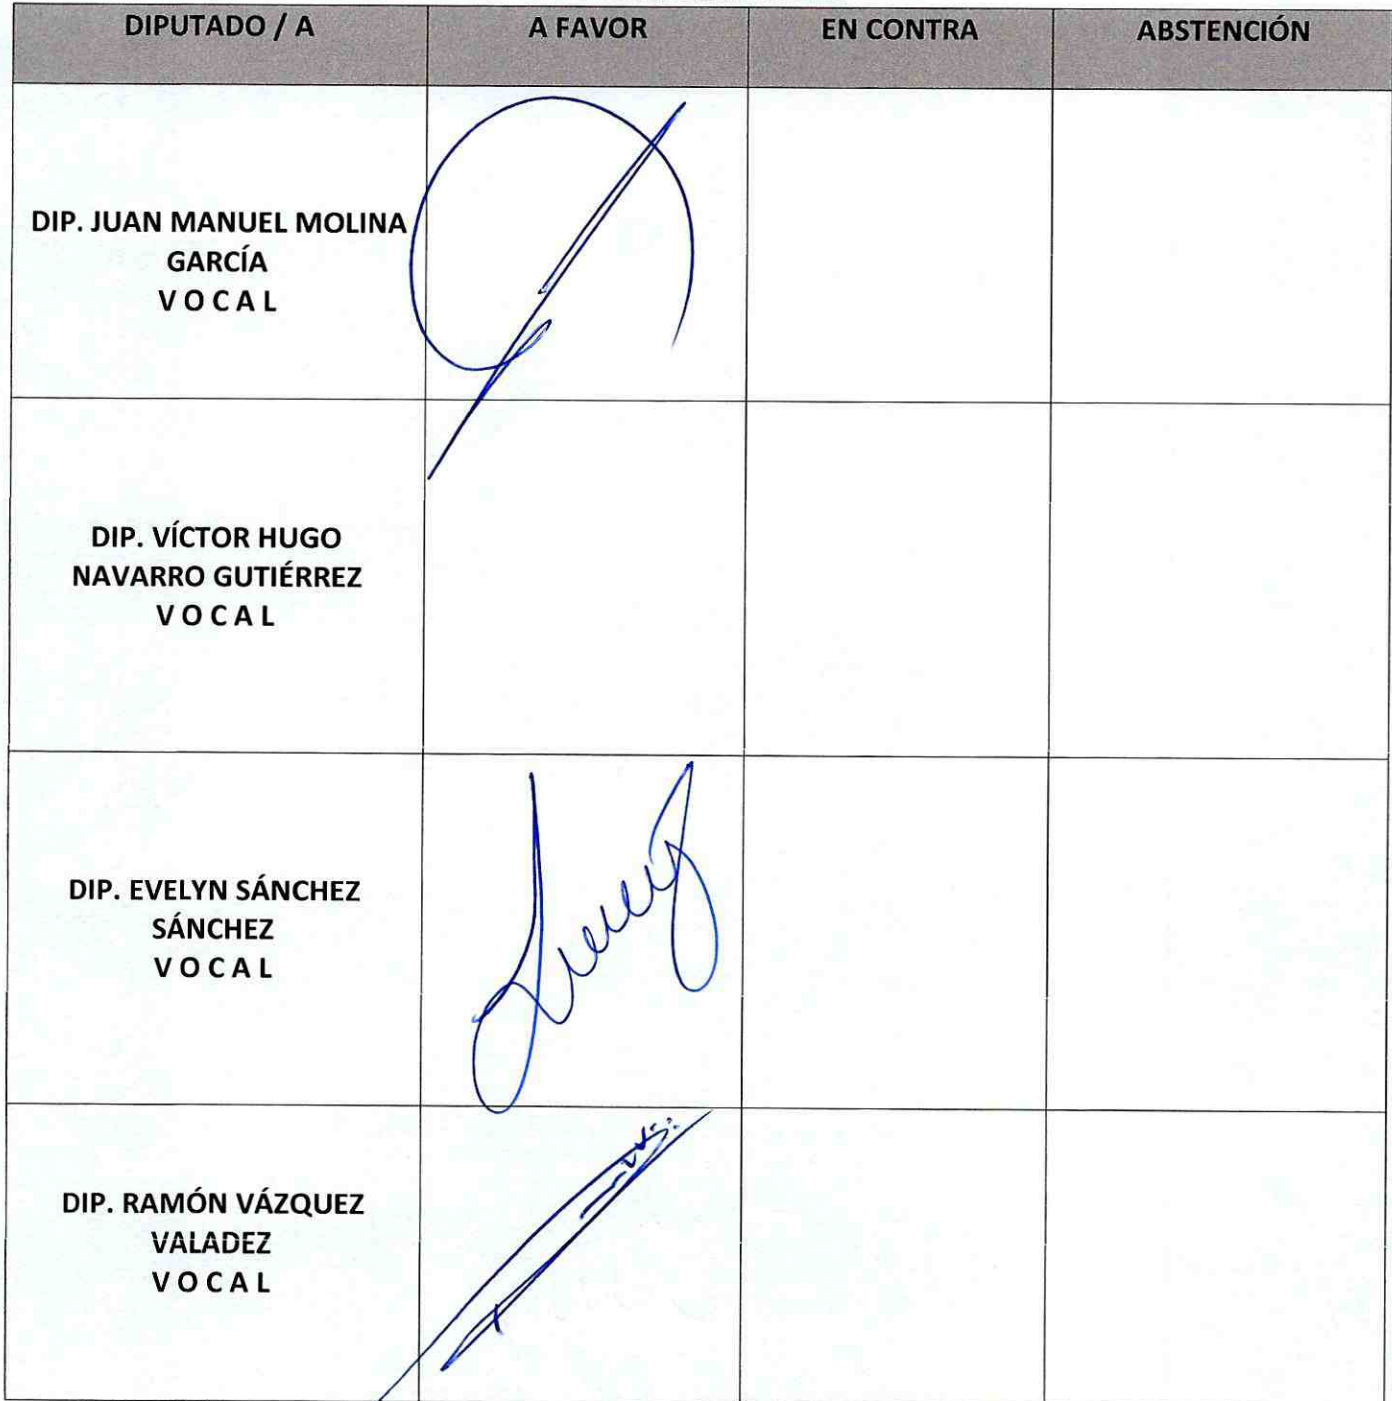 DIPUTADO / A A FAVOR EN CONTRA ABSTENCIÓN
DIP. JUAN MANUEL MOLINA
GARCÍA
V O C A L
DIP. VÍCTOR HUGO
NAVARRO GUTIÉRREZ
V O C A L
DIP. EVELYN SÁNCHEZ
SÁNCHEZ
V O C A L
DIP. RAMÓN VÁZQUEZ
VALADEZ
V O C A L